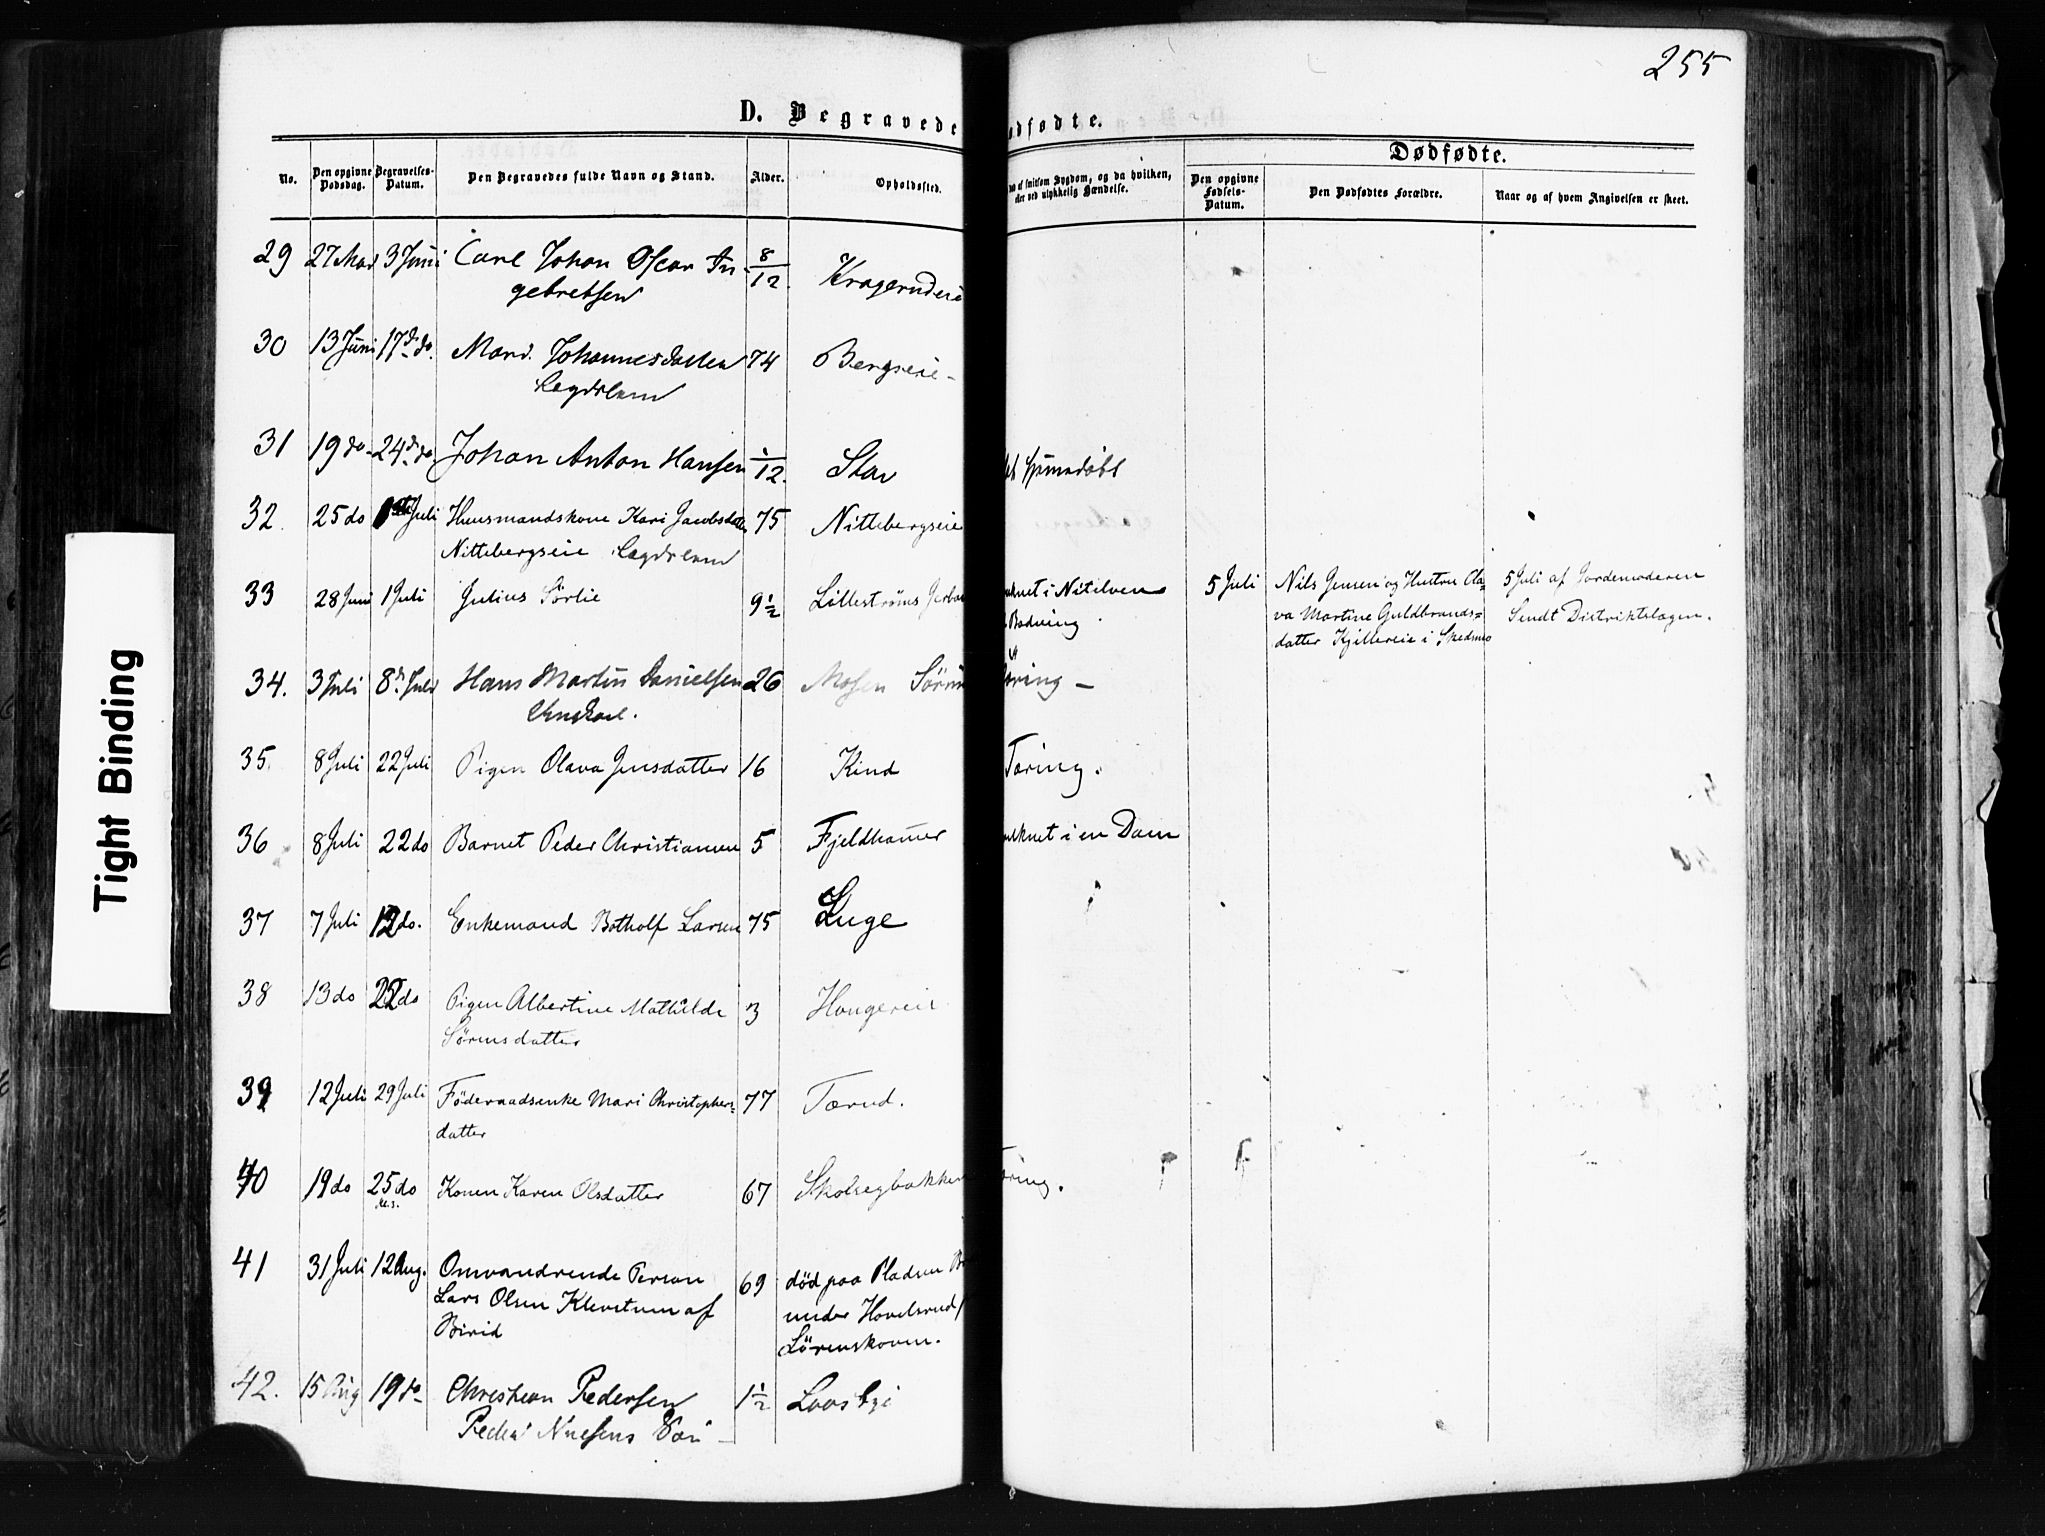 255
D. Begravede
ødfødte.
Dødfødte.
No.
Den opgivne Dødsdag.
Begravelses-Datum.
Den Begravedes fulde Navn og Stand.
Alder.
Opholdssted.
af smitsom Sygdom, og da hvilken,
eller ved ulykkelig Hændelse.
Den opgivne Fødsels-Datum.
Den Dødfødtes Forældre.
Naar og af hvem Angivelsen er skeet.
29 27 Mai 3 Juni Carl Johan Oscar In- 8/12
gebretsen Kragerudeie
30 13 Juni 17de do. Mari Johannesdatter 74 Bergseie
Lægdslem
31 19 do 24de do Johan Anton Hansen 1/12 Stav
32. 25 do 1ste Juli Huusmandskone Kari Jacobsdatter 75 Nittebergseie
Nittebergseie Lægdslem
33 28 Juni 1 Juli Julius Sørlie 9½ Lillestrøms
druknet i Nitelven
Badning
5 Juli Nils Jensen og Hustru Ola-
va Martine Guldbrands=
datter Kjillereie i Skedsmo
5 Juli af Jordemoderen
Sendt Distriktslægen.
34. 3 Juli 8de Juli Hans Martin Danielsen 26 Mosen Sörum
Ungkarl.
35. 8 Juli 22 Juli Pigen Olava Jensdatter 16 Kind Tæring.
36 8 Juli 22 do Barnet Peder Christiansen 5 Fjeldhamer druknet i en Dam
37 7 Juli 12 do. Enkemand Botholf Larsen 75 Luge
38 13 do 22 do Pigen Albertine Mathilde 3 Haugereie
Sørensdatter
39 12 Juli 29 Juli Föderaadsenke Mari Christophers= 77 Tærud.
datter
40 19 do 25 do Konen Karen Olsdatter 67 Skolsegbakken æring.
41 31 Juli 12 Aug. Omvandrende Person 69 død paa Pladsen
Lars Olsen Klevstuen af under Hovelsrud
Birid Lörenskoven.
42. 15 Aug 19 do Christian Pedersen 1½ Loosbyi
Peder Nielsens
Tight Binding